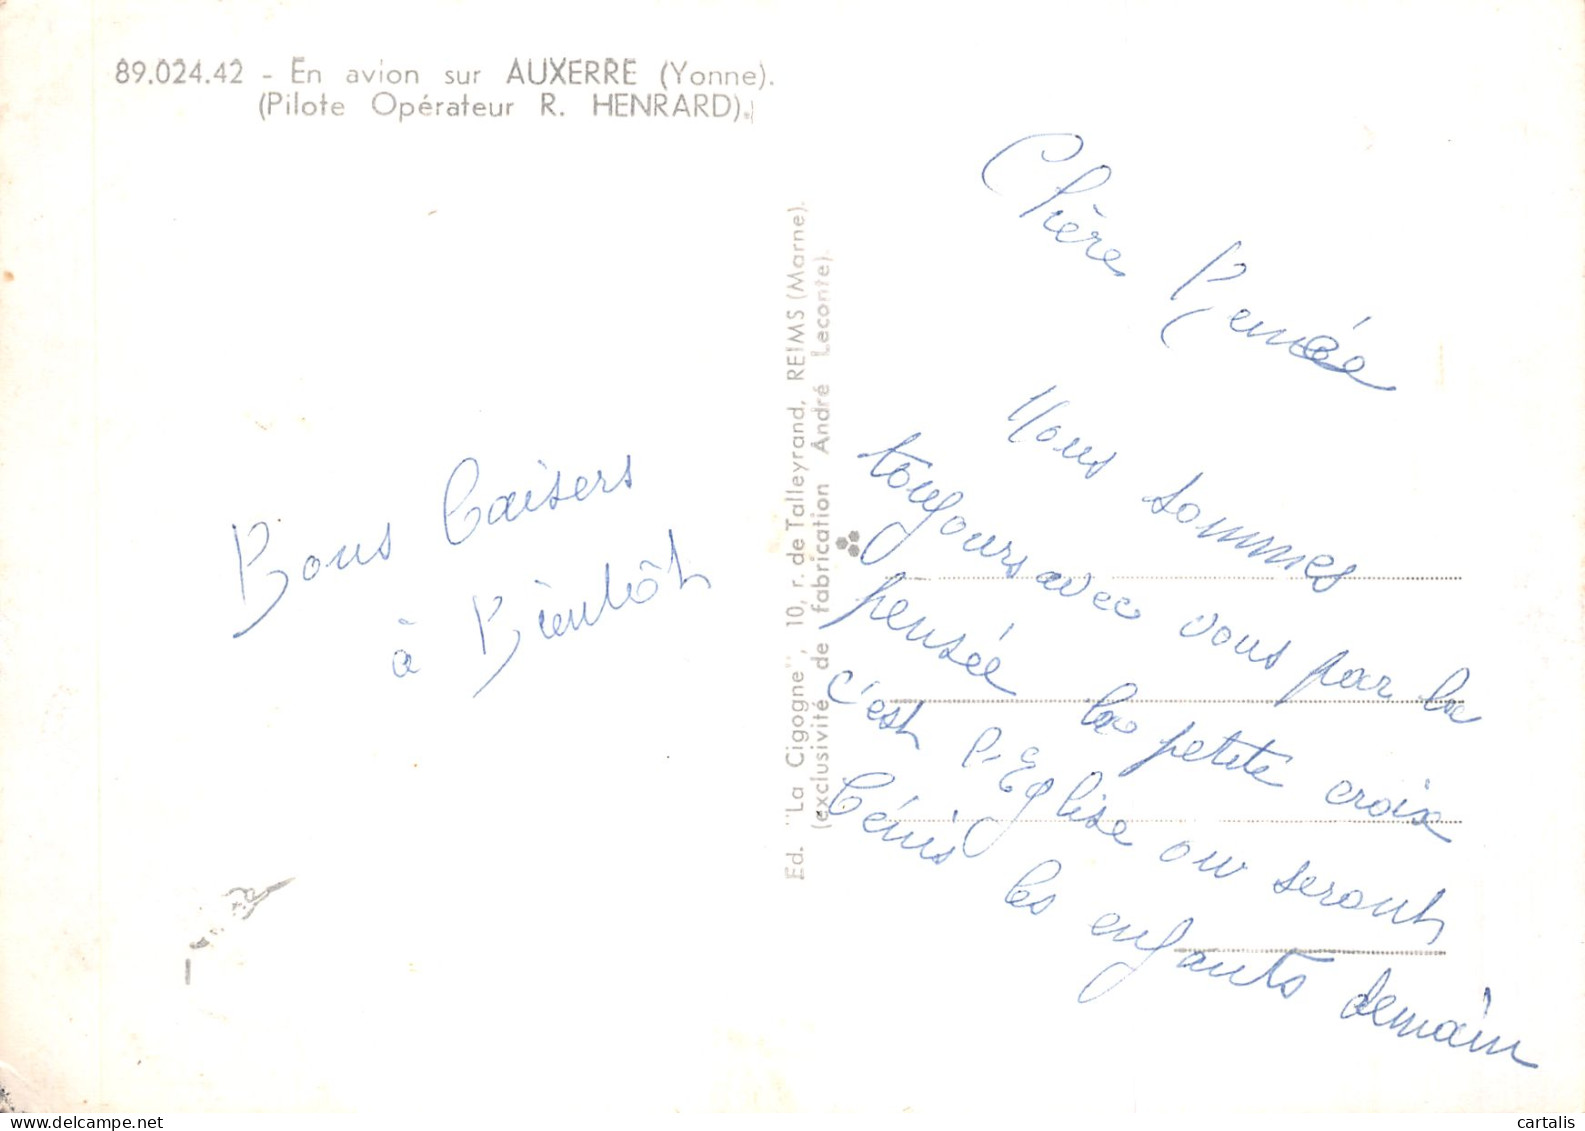 89.024.42 - En avion sur AUXERRE (Yonne).
(Pilote Opérateur R. HENRARD).
Chère Renée
Nous sommes
toujours avec vous par la
pensée la petite croix
c'est l'Eglise ou seront
bénis les enfants demain
Bons baisers
à Bientôt
Ed. "La Cigogne", 10, r. de Talleyrand, REIMS (Marne).
(exclusivité de fabrication André Leconte).
cartalis